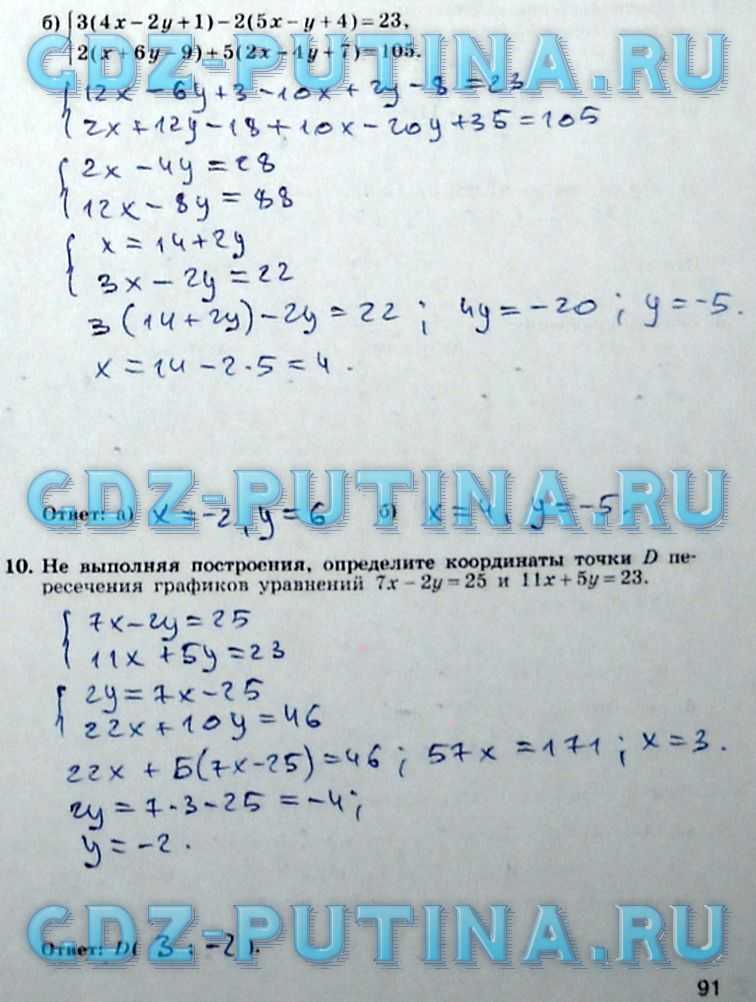 б) {3(4x − 2y + 1) − 2(5x − y + 4) = 23,
2(x + 6y − 9) + 5(2x − 4y + 7) = 105.
GDZ-PUTINA.RU
{12x − 6y + 3 − 10x + 2y − 8 = 23
2x + 12y − 18 + 10x − 20y + 35 = 105
{2x − 4y = 28
12x − 8y = 88
{x = 14 + 2y
3x − 2y = 22
3(14 + 2y) − 2y = 22; 4y = −20; y = −5.
x = 14 − 2·5 = 4.
GDZ-PUTINA.RU
Ответ: а) x = −2, y = 6 б) x = 4, y = −5.
10. Не выполняя построения, определите координаты точки D пе-
ресечения графиков уравнений 7x − 2y = 25 и 11x + 5y = 23.
{7x − 2y = 25
11x + 5y = 23
{2y = 7x − 25
22x + 10y = 46
GDZ-PUTINA.RU
22x + 5(7x − 25) = 46; 57x = 171; x = 3.
2y = 7·3 − 25 = −4;
y = −2.
GDZ-PUTINA.RU
Ответ: D( 3 ; −2 ).
91